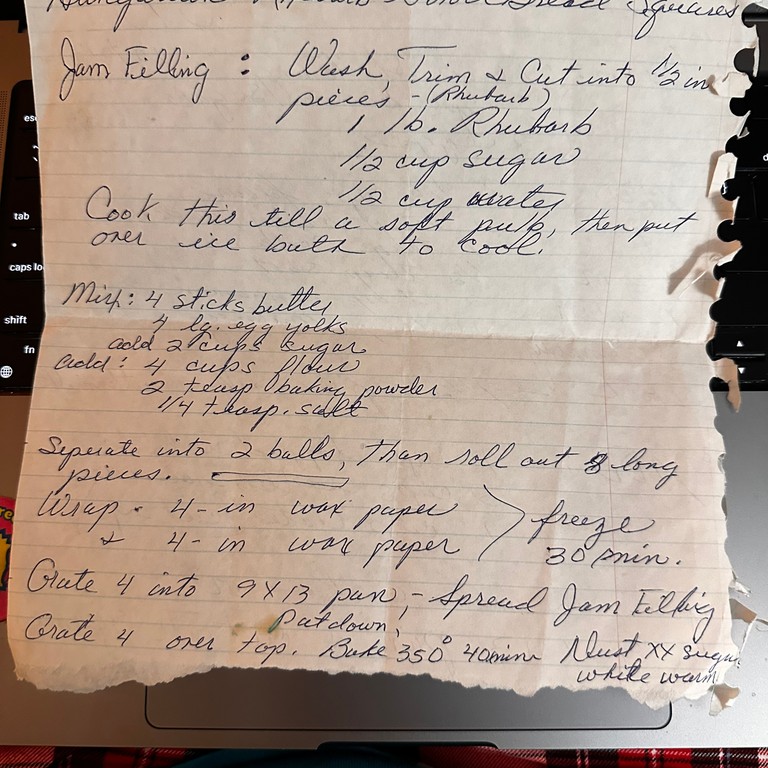 Hungarian Rhubarb Short Bread Squares
Jam Filling : Wash, Trim & Cut into 1/2 in
pieces - (Rhubarb)
1 lb. Rhubarb
1/2 cup sugar
1/2 cup water
Cook this till a soft pulp, then put
over ice bath to cool.
Mix: 4 sticks butter
4 lg. egg yolks
add 2 cups sugar
add: 4 cups flour
2 teasp baking powder
1/4 teasp. salt
Seperate into 2 balls, than roll out 8 long
pieces.
Wrap - 4 - in wax paper
& 4 - in wax paper
freeze
30 min.
Grate 4 into 9X13 pan, - Spread Jam Filling
Pat down,
Grate 4 over top. Bake 350° 40 min Dust XX sugar
white warm
esc
tab
caps lo
shift
fn